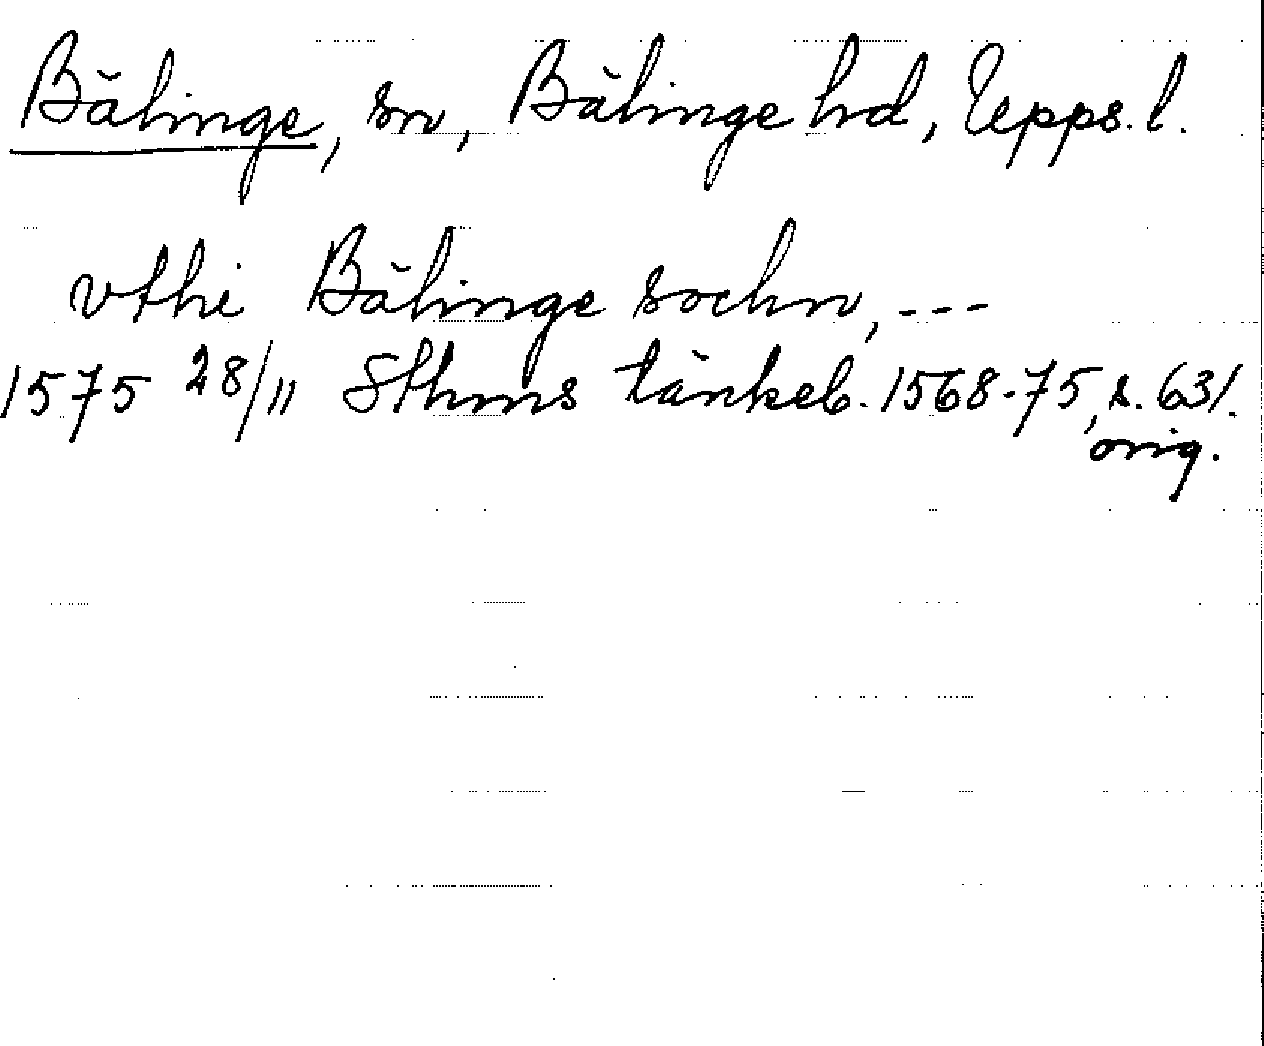 Bälinge, sn, Bälinge hd, Upps. l.
vthi Bälinge sochn, ---
1575 28/11 Sthms tänkeb. 1568-75, s. 631.
orig.